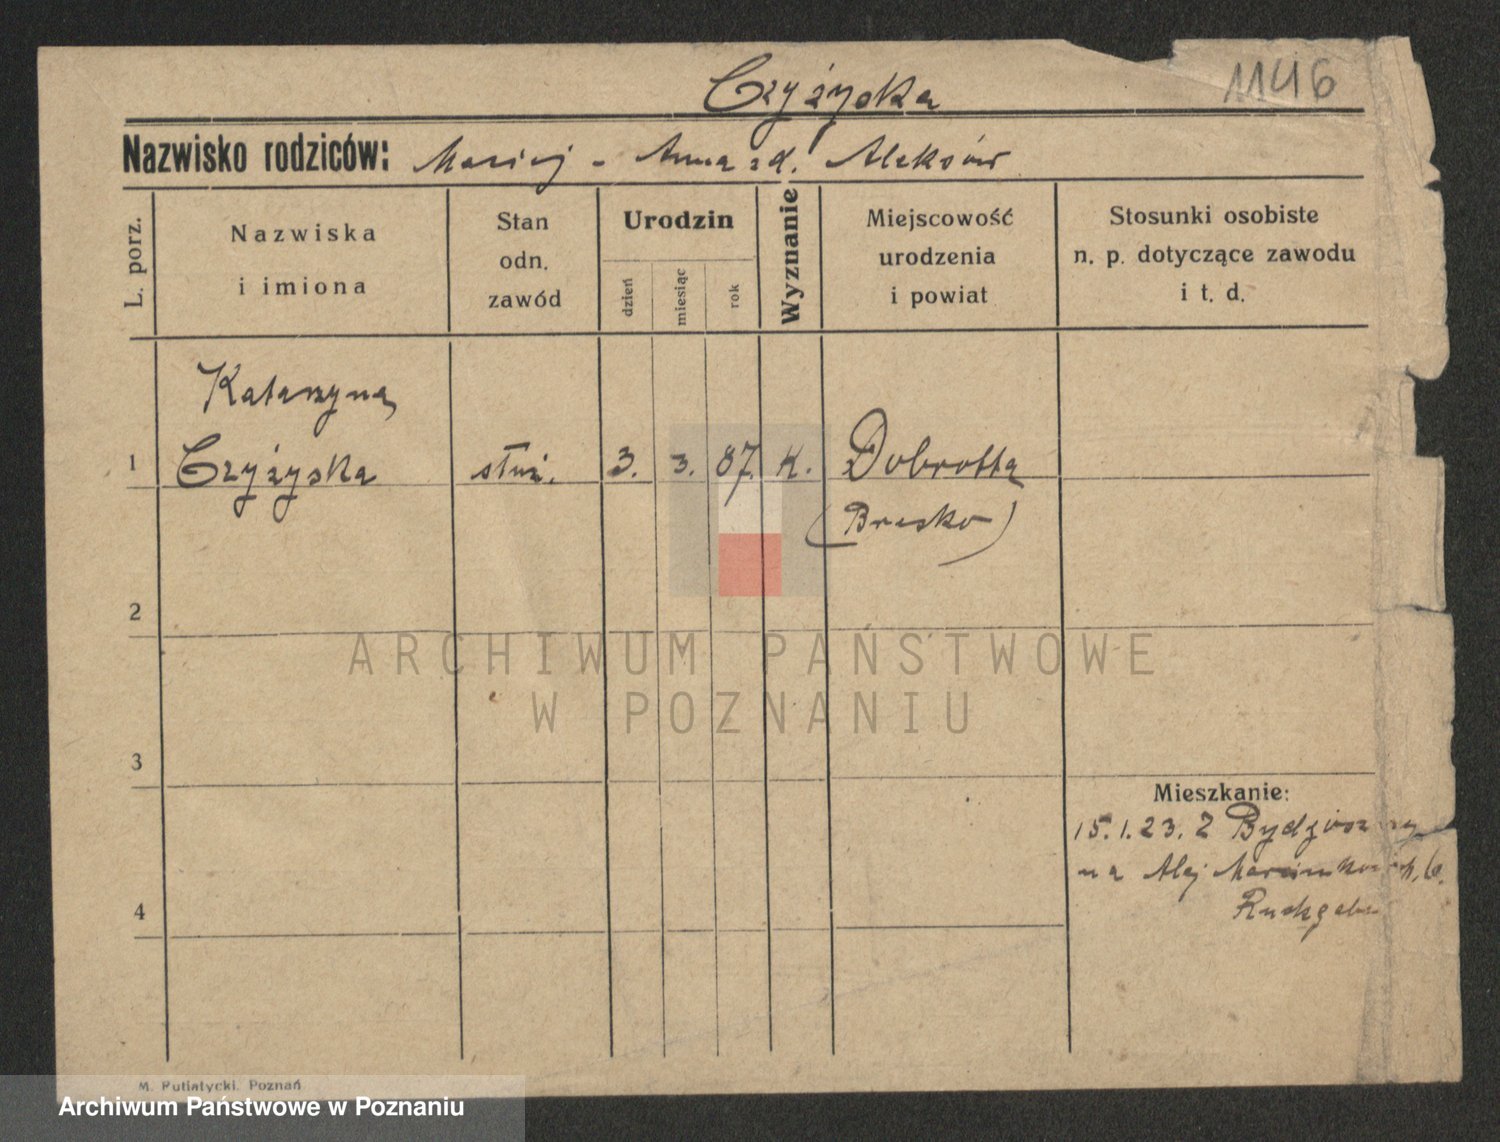 Czyżyska
1146
Nazwisko rodziców: Maciej - Anna zd. Aleksów
L. porz.
Nazwiska
i imiona
Stan
odn.
zawód
Urodzin
dzień
miesiąc
rok
Wyznanie
Miejscowość
urodzenia
i powiat
Stosunki osobiste
n. p. dotyczące zawodu
i t. d.
Katarzyna
1 Czyżyska służ. 3. 3. 87. K. Dobrotta
(Bresko)
2
ARCHIWUM PAŃSTWOWE
W POZNANIU
3
Mieszkanie:
15.1.23. Z Bydgoszczy
na Alej Marcinkowsk. 6.
4
M. Putiatycki, Poznań
Archiwum Państwowe w Poznaniu